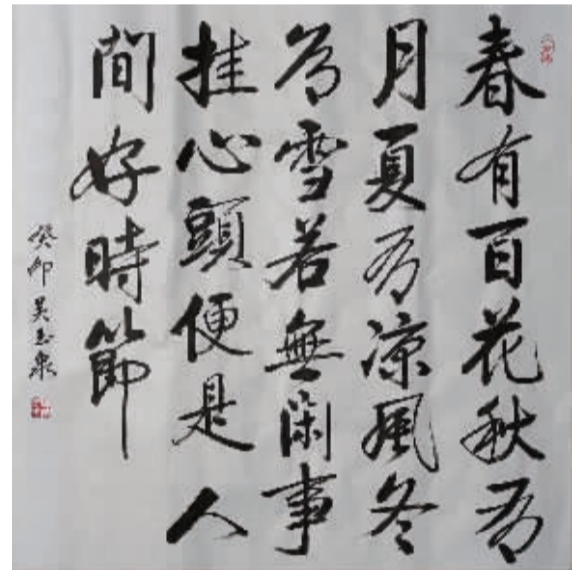 春有百花秋有
月夏有凉風冬
有雪若無閑事
挂心頭便是人
間好時節
癸卯吴玉泉